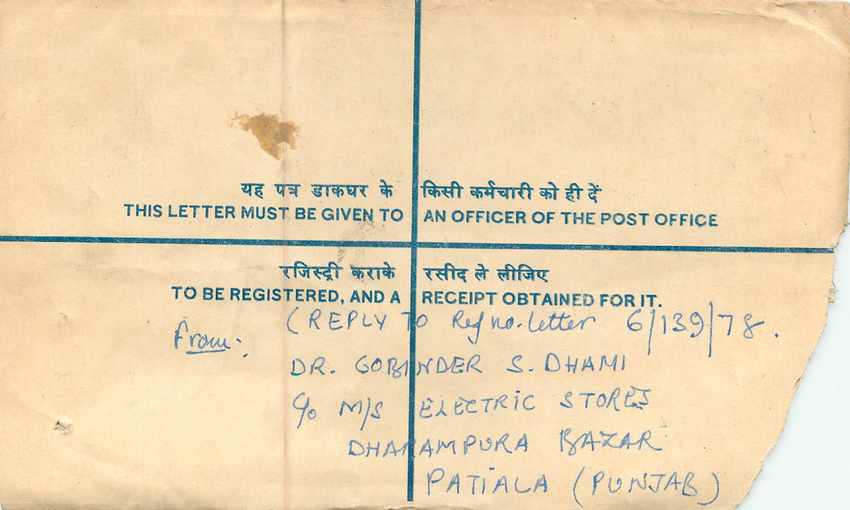 यह पत्र डाकघर के किसी कर्मचारी को ही दें
THIS LETTER MUST BE GIVEN TO AN OFFICER OF THE POST OFFICE
रजिस्ट्री कराके रसीद ले लीजिए
TO BE REGISTERED, AND A RECEIPT OBTAINED FOR IT.
(REPLY TO Ref no. letter 6/139/78.
From:
DR. GOBINDER S. DHAMI
c/o M/S ELECTRIC STORES
DHARAMPURA BAZAR
PATIALA (PUNJAB)